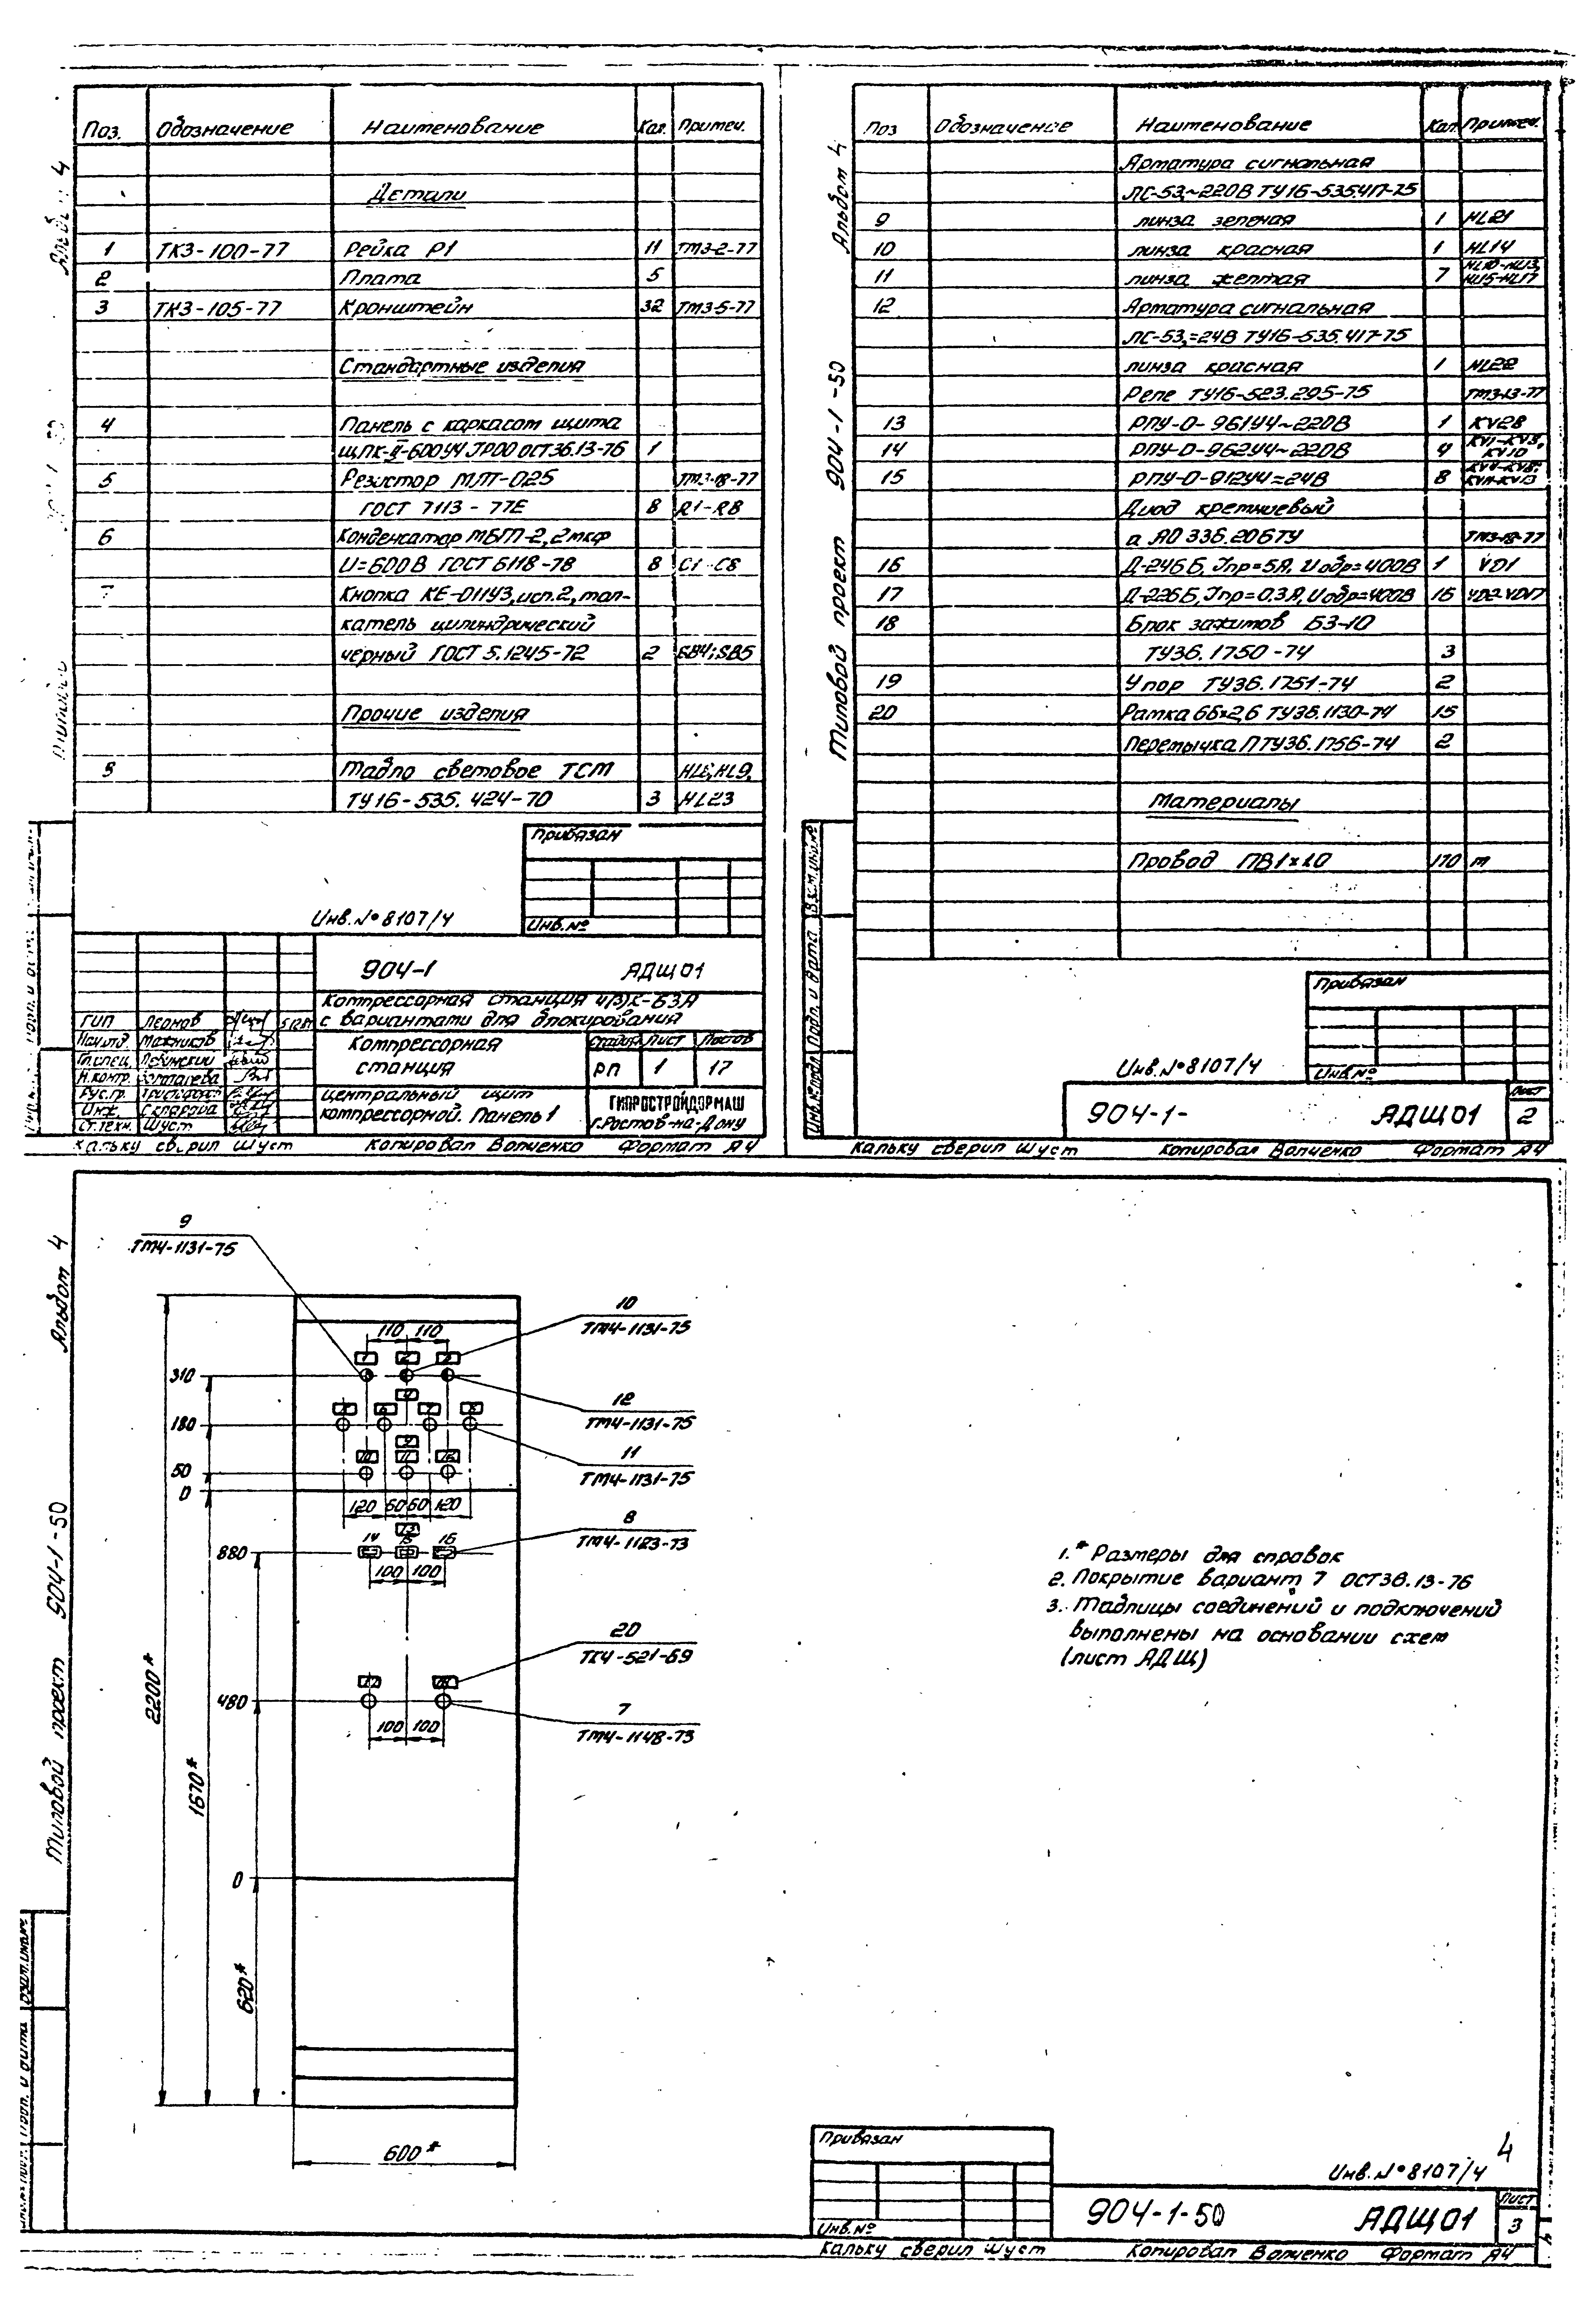 Поз. Обозначение Наименование Кол. Примеч.
Детали
1 ТК3-100-77 Рейка Р1 11 ТМ3-2-77
2 Плата 5
3 ТК3-105-77 Кронштейн 32 ТМ3-5-77
Стандартные изделия
4 Панель с каркасом щита
ЩПК-II-600У4 JP00 ОСТ36.13-76 1
5 Резистор МЛТ-0.25 ТМ3-18-77
ГОСТ 7113-77Е 8 R1-R8
6 Конденсатор МБГП-2, 2мкф
U=600В ГОСТ 6118-78 8 C1-C8
7 Кнопка КЕ-011У3, исп.2, тол-
катель цилиндрический
черный ГОСТ 5.1245-72 2 SB4; SB5
Прочие изделия
8 Табло световое ТСМ HL8, HL9,
ТУ16-535.424-70 3 HL23
Привязан
Инв.№
Инв.№ 8107/4
904-1 АДЩ01
Компрессорная станция 4(3)К-63А
с вариантами для блокирования
ГИП Леонов
Нач.отд. Мажников
Гл.спец. Левинский
Н.контр.
Рук.гр.
Инж. Склярова
Ст.техн. Шуст
Компрессорная
станция
Стадия Лист Листов
РП 1 17
Центральный щит
компрессорной. Панель 1
ГИПРОСТРОЙДОРМАШ
г.Ростов-на-Дону
Кальку сверил Шуст Копировал Волченко Формат А4
Альбом 4
Типовой проект 904-1-50
Поз Обозначение Наименование Кол. Примеч.
Арматура сигнальная
ЛС-53,~220В ТУ16-535.417-75
9 линза зеленая 1 HL21
10 линза красная 1 HL14
11 линза желтая 7 HL10-HL13, HL15-HL17
12 Арматура сигнальная
ЛС-53,=24В ТУ16-535.417-75
линза красная 1 HL22
Реле ТУ16-523.295-75 ТМ3-13-77
13 РПУ-0-961У4~220В 1 KV28
14 РПУ-0-962У4~220В 4 KV1-KV3, KV10
15 РПУ-0-912У4=24В 8 KV4-KV8; KV11-KV13
Диод кремниевый
аА0.336.206ТУ ТМ3-18-77
16 Д-246Б, Jпр=5А, Uобр=400В 1 VD1
17 Д-226Б, Jпр=0.3А, Uобр=400В 16 VD2-VD17
18 Блок зажимов БЗ-10
ТУ36.1750-74 3
19 Упор ТУ36.1751-74 2
20 Рамка 66х26 ТУ36.1130-74 15
Перемычка П ТУ36.1756-74 2
Материалы
Провод ПВ1х1.0 170 м
Привязан
Инв.№
Инв.№ 8107/4
904-1- АДЩ01 Лист 2
Инв.№ подл. Подп. и дата Взам.инв.№
Кальку сверил Шуст Копировал Волченко Формат А4
Альбом 4
Типовой проект 904-1-50
9
ТМ4-1131-75
10
ТМ4-1131-75
12
ТМ4-1131-75
11
ТМ4-1131-75
8
ТМ4-1123-73
20
ТК4-521-69
7
ТМ4-1148-73
110 110
1 2 3
310
4
5 6 7 8
180
9
10 11 12
50
0
120 60 60 120
13
14 15 16
880
100 100
17 18
480
100 100
0
2200*
1670*
620*
600*
1.* Размеры для справок
2. Покрытие вариант 7 ОСТ36.13-76
3. Таблицы соединений и подключений
выполнены на основании схем
(лист АДЩ)
4
Привязан
Инв.№
Инв.№ 8107/4
904-1-50 АДЩ01 Лист 3
Кальку сверил Шуст Копировал Волченко Формат А4